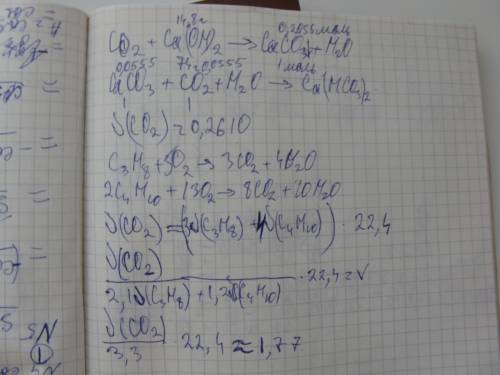 14,8г 0,2055моль
CO2 + Ca(OH)2 → CaCO3↓ + H2O
0,0555 74·0,0555 1моль
CaCO3 + CO2 + H2O → Ca(HCO3)2
1 1
ν(CO2) = 0,2610
C3H8 + 5O2 → 3CO2 + 4H2O
2C4H10 + 13O2 → 8CO2 + 10H2O
ν(CO2) = (3ν(C3H8) + 4ν(C4H10)) · 22,4
ν(CO2)
2,1ν(C3H8) + 1,2ν(C4H10) · 22,4 = V
ν(CO2)
3,3 22,4 ≈ 1,77
N5
1